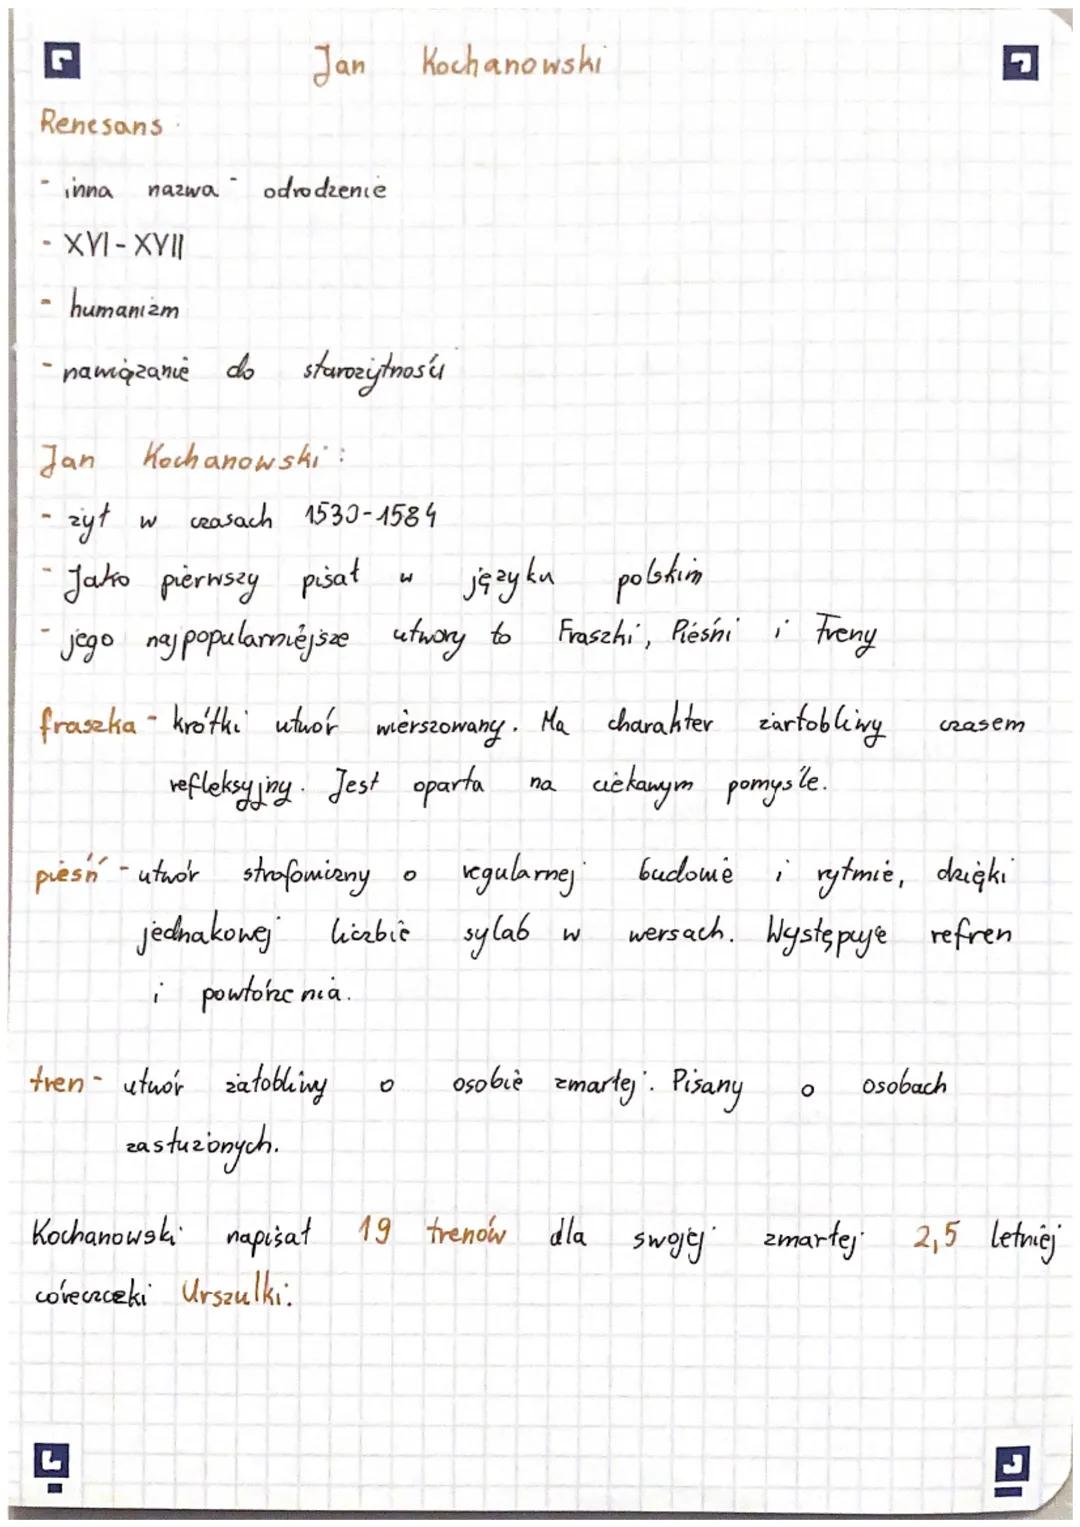 Jan Kochanowski
Renesans
- inna nazwa - odrodzenie
- XVI - XVII
- humanizm
- nawiązanie do starożytności
Jan Kochanowski:
- żył w czasach 1530-1584
- Jako pierwszy pisał w języku polskim
- jego najpopularniejsze utwory to Fraszki, Pieśni i Treny
fraszka - krótki utwór wierszowany. Ma charakter żartobliwy czasem
refleksyjny. Jest oparta na ciekawym pomyśle.
pieśń - utwór stroficzny o regularnej budowie i rytmie, dzięki
jednakowej liczbie sylab w wersach. Występuje refren
i powtórzenia.
tren - utwór żałobliwy o osobie zmarłej. Pisany o osobach
zasłużonych.
Kochanowski napisał 19 trenów dla swojej zmarłej 2,5 letniej
córeczceki Urszulki.